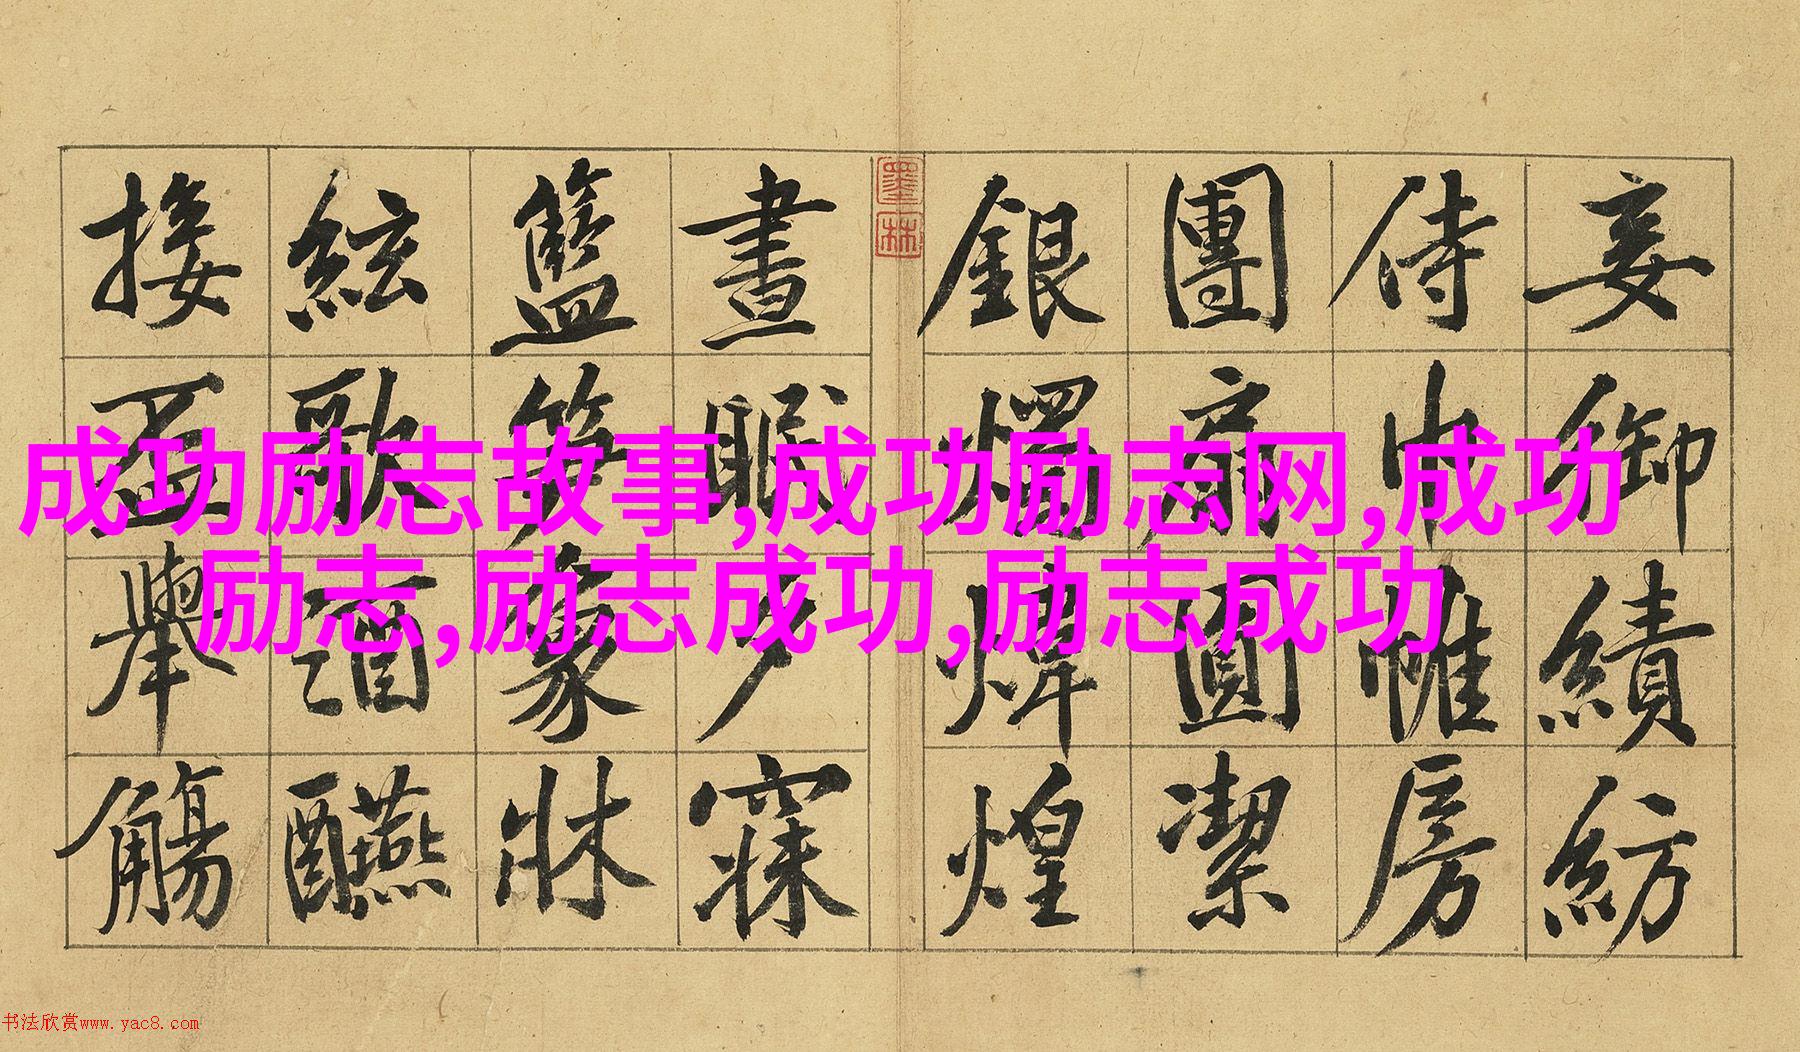 妾御績紡
侍巾帷房
團扇圓潔
銀燭煒煌
墨林
晝眠夕寐
籃笋象牀
絃歌酒醼
接盃舉觴
成功励志故事,成功励志网,成功
励志,励志成功,励志成功
书法欣赏www.yac8.com